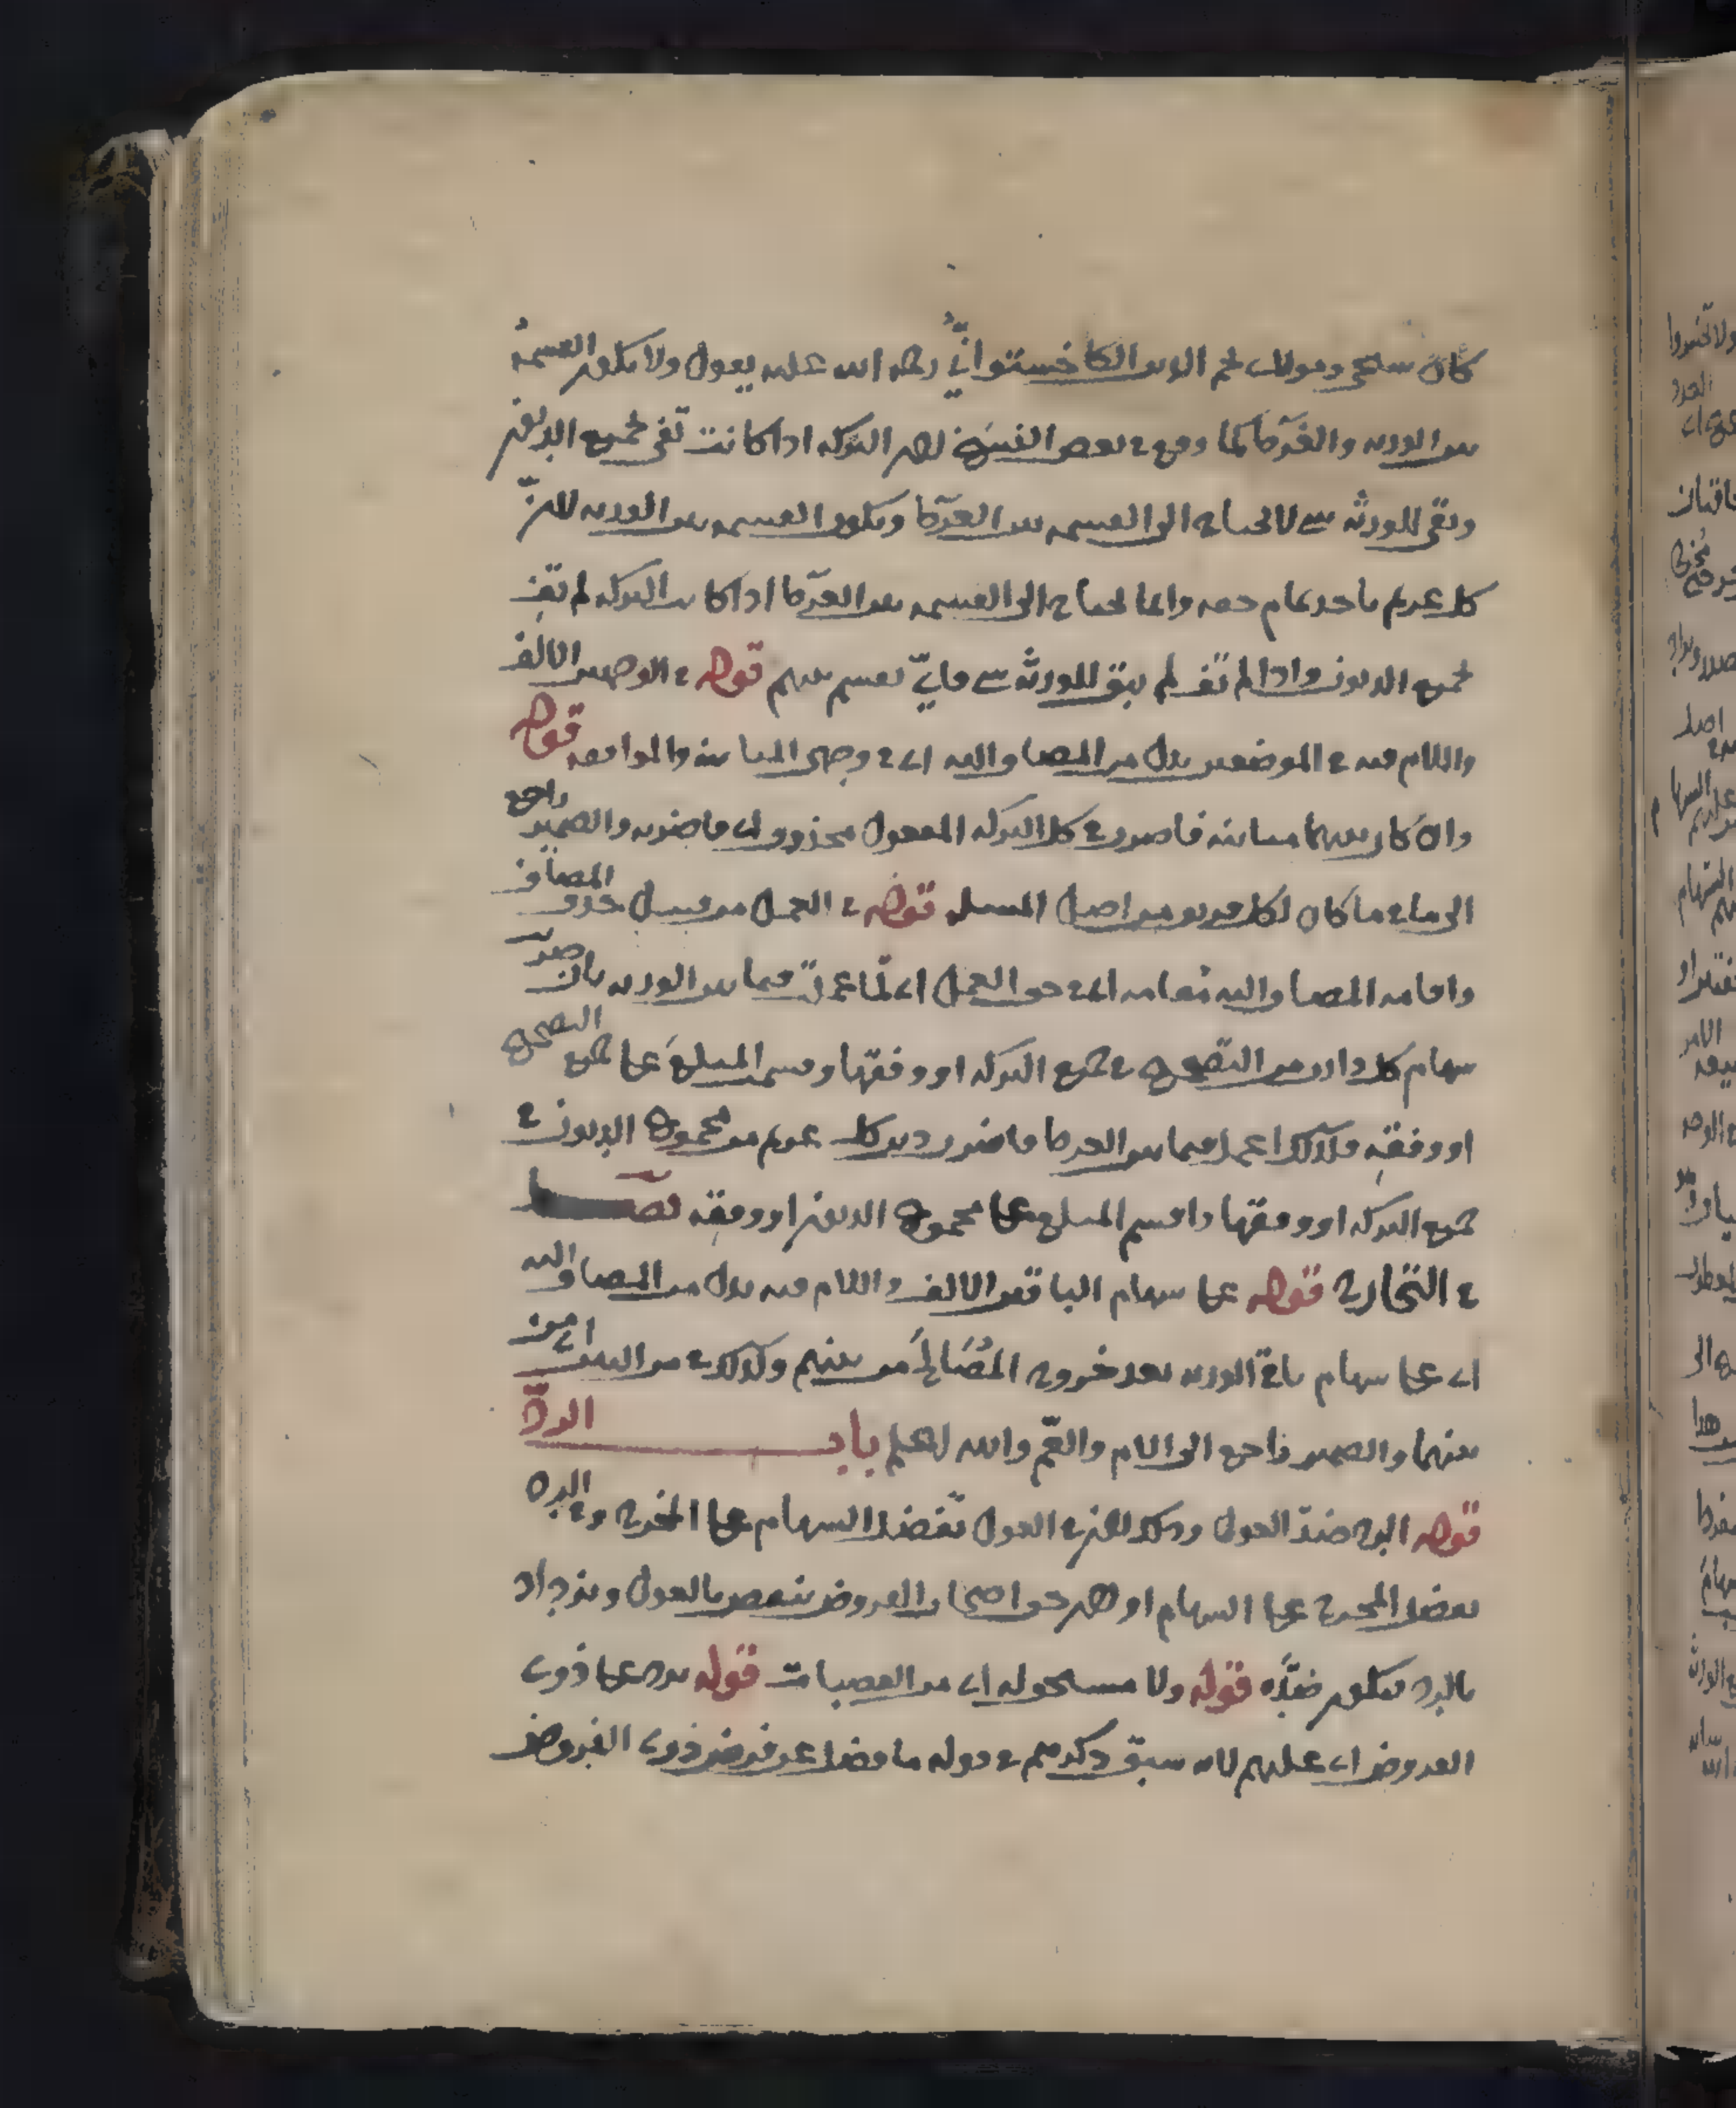 كان شيخي ومولاي نجم الدين الكاخستواني رحمه الله عليه يقول ولا يكون القسمة
بين الورثة والغرماء كما وقع في بعض النسخ لان التركه اذا كانت تفي بجميع الديون
وبقي للورثة شي لا يحتاج الى القسمه بين الغرماء ويكون القسمه بين الورثه لان
كل غريم ياخذ تمام حقه وانما يحتاج الى القسمه بين الغرماء اذا كانت التركه لم تف
بجميع الديون واذا لم تف لم يبق للورثة شي فاي يقسم بينهم قوله في الوجهين الالف
واللام فيه في الموضعين بدل من المضاف اليه اي في وجهي المباينة والموافقه قوله
وان كان بينهما مباينه فاضرب في كل التركه المفعول محذوف اي فاضربه والضمير راجع
الى ما في ما كان لكل فريق من اصل المسله قوله في العمل من قبيل حذف المضاف
واقامه المضاف اليه مقامه اي في حق العمل اي لما عمل فيما بين الورثه بان ضرب
سهام كل وارث من التصحيح في جميع التركه او وفقها وقسم المبلغ على جميع التصحيح
او وفقه فكذلك اعمل فيما بين الغرما فاضرب دين كل غريم من مجموع الديون في
جميع التركه او وفقها واقسم المبلغ على مجموع الديون او وفقه فصل
في التخارج قوله على سهام الباقين الالف واللام فيه بدل من المضاف اليه
اي على سهام باقي الورثه بعد خروج المصالح من بينهم وكذلك في من البين اي من
بينهما والضمير راجع الى الام والعم والله اعلم باب الرد
قوله الرد ضد العول وذلك لان في العول تفضل السهام على المخرج وفي الرد
يفضل المخرج على السهام او لان حق اصحاب الفروض ينتقص بالعول ويزداد
بالرد فيكون ضده قوله ولا مستحق له اي من العصبات قوله يرد على ذوي
الفروض اي عليهم لانه سبق ذكرهم في قوله ما فضل عن فرض ذوي الفروض